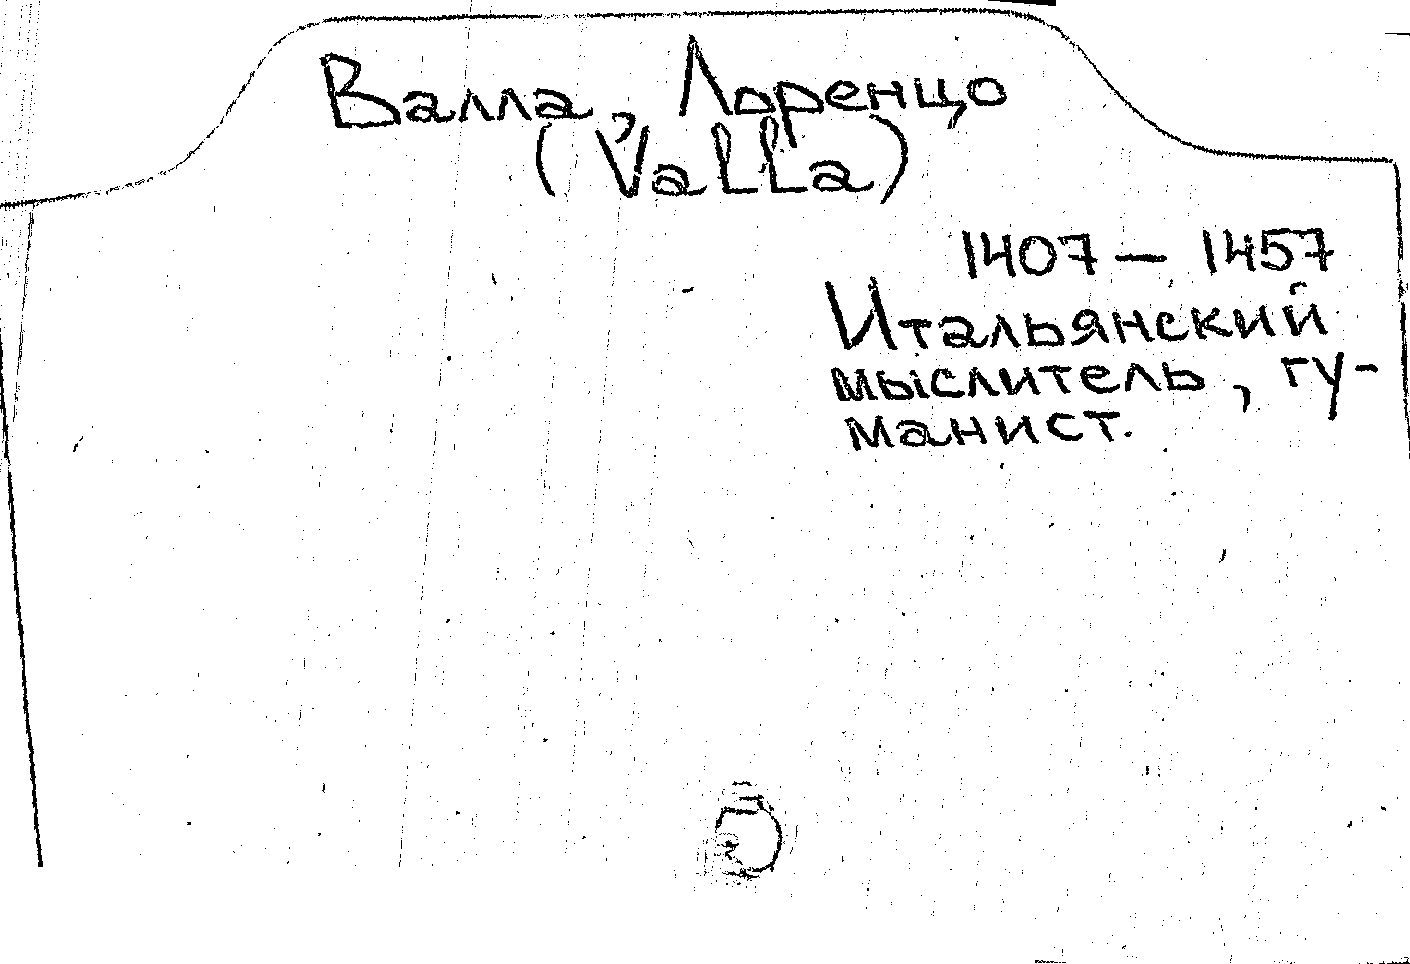 Валла, Лоренцо
(Valla)
1407 — 1457
Итальянский
мыслитель, гу-
манист.